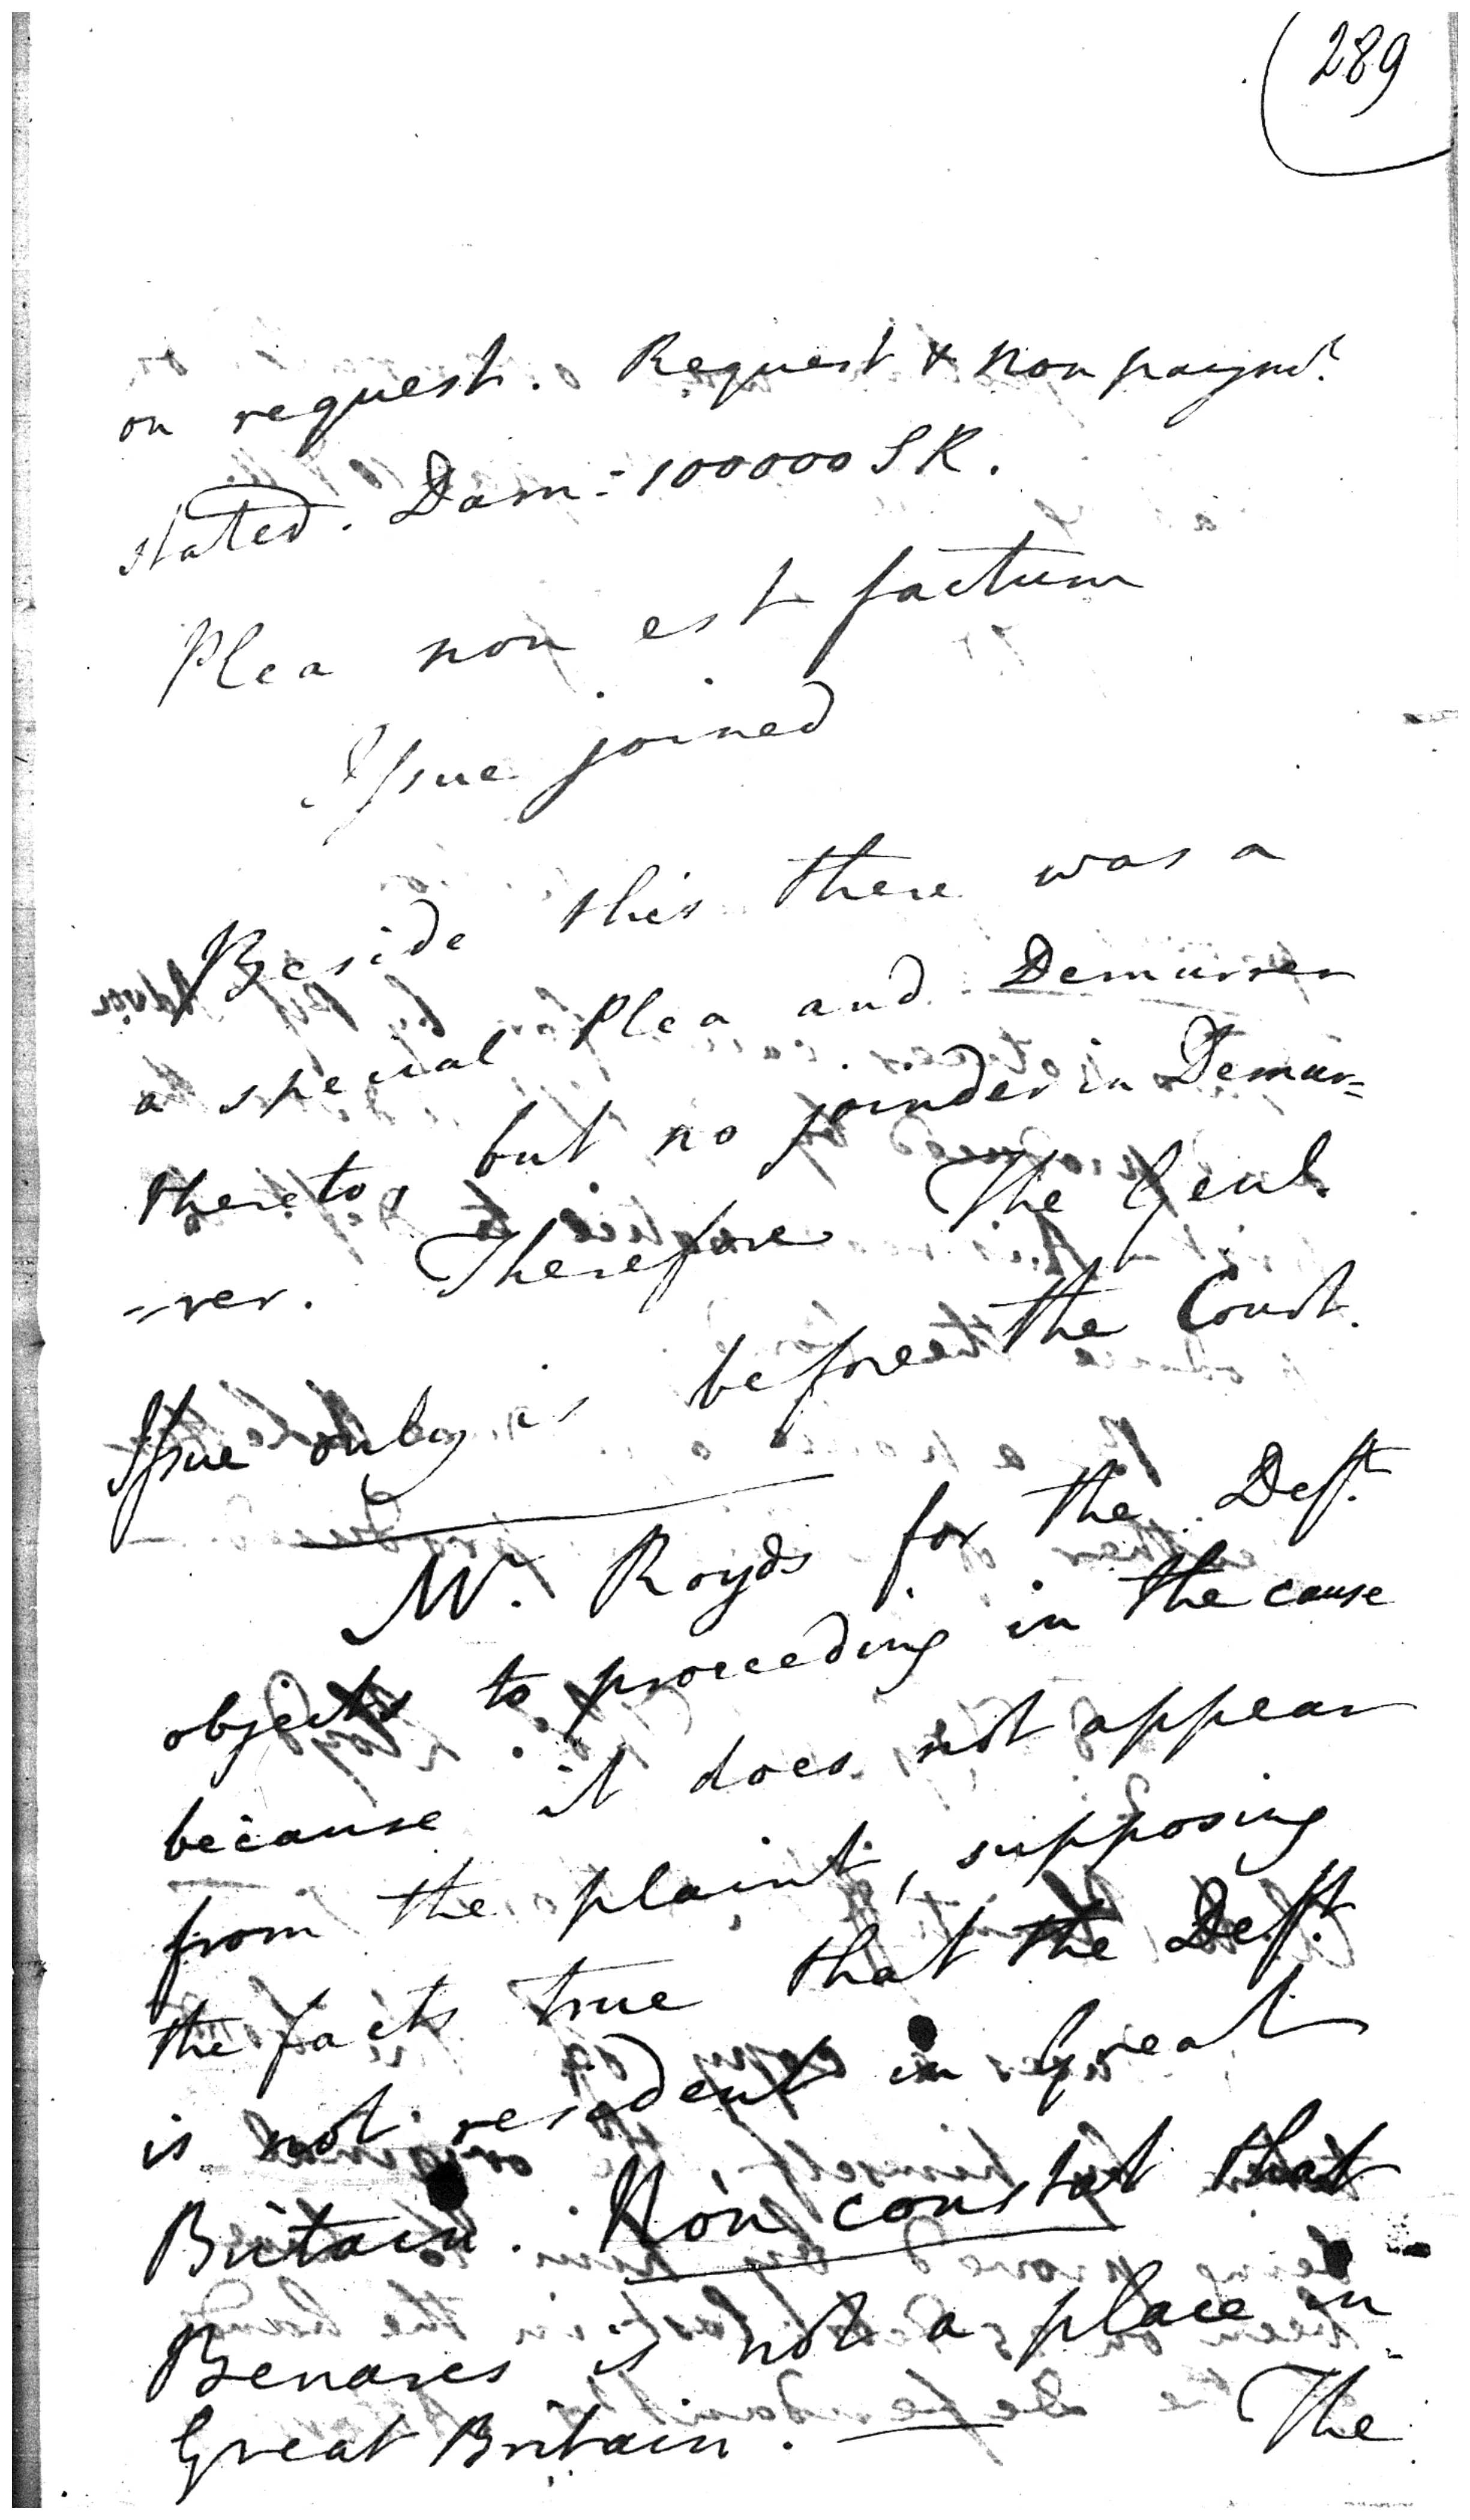 289
on request. Request & non paymt.
stated. Dam = 100000 SR.
Plea non est factum
Issue joined
Beside this there was a
a special Plea and Demurrer
thereto, but no joinder in Demur=
=rer. Therefore The Genl.
Issue only is before the Court.
Mr. Royds for the Deft.
objects to proceeding in the cause
because it does not appear
from the plaint, supposing
the facts true that the Deft.
is not resident in Great
Britain. Non constat that
Benares is not a place in
Great Britain. — The